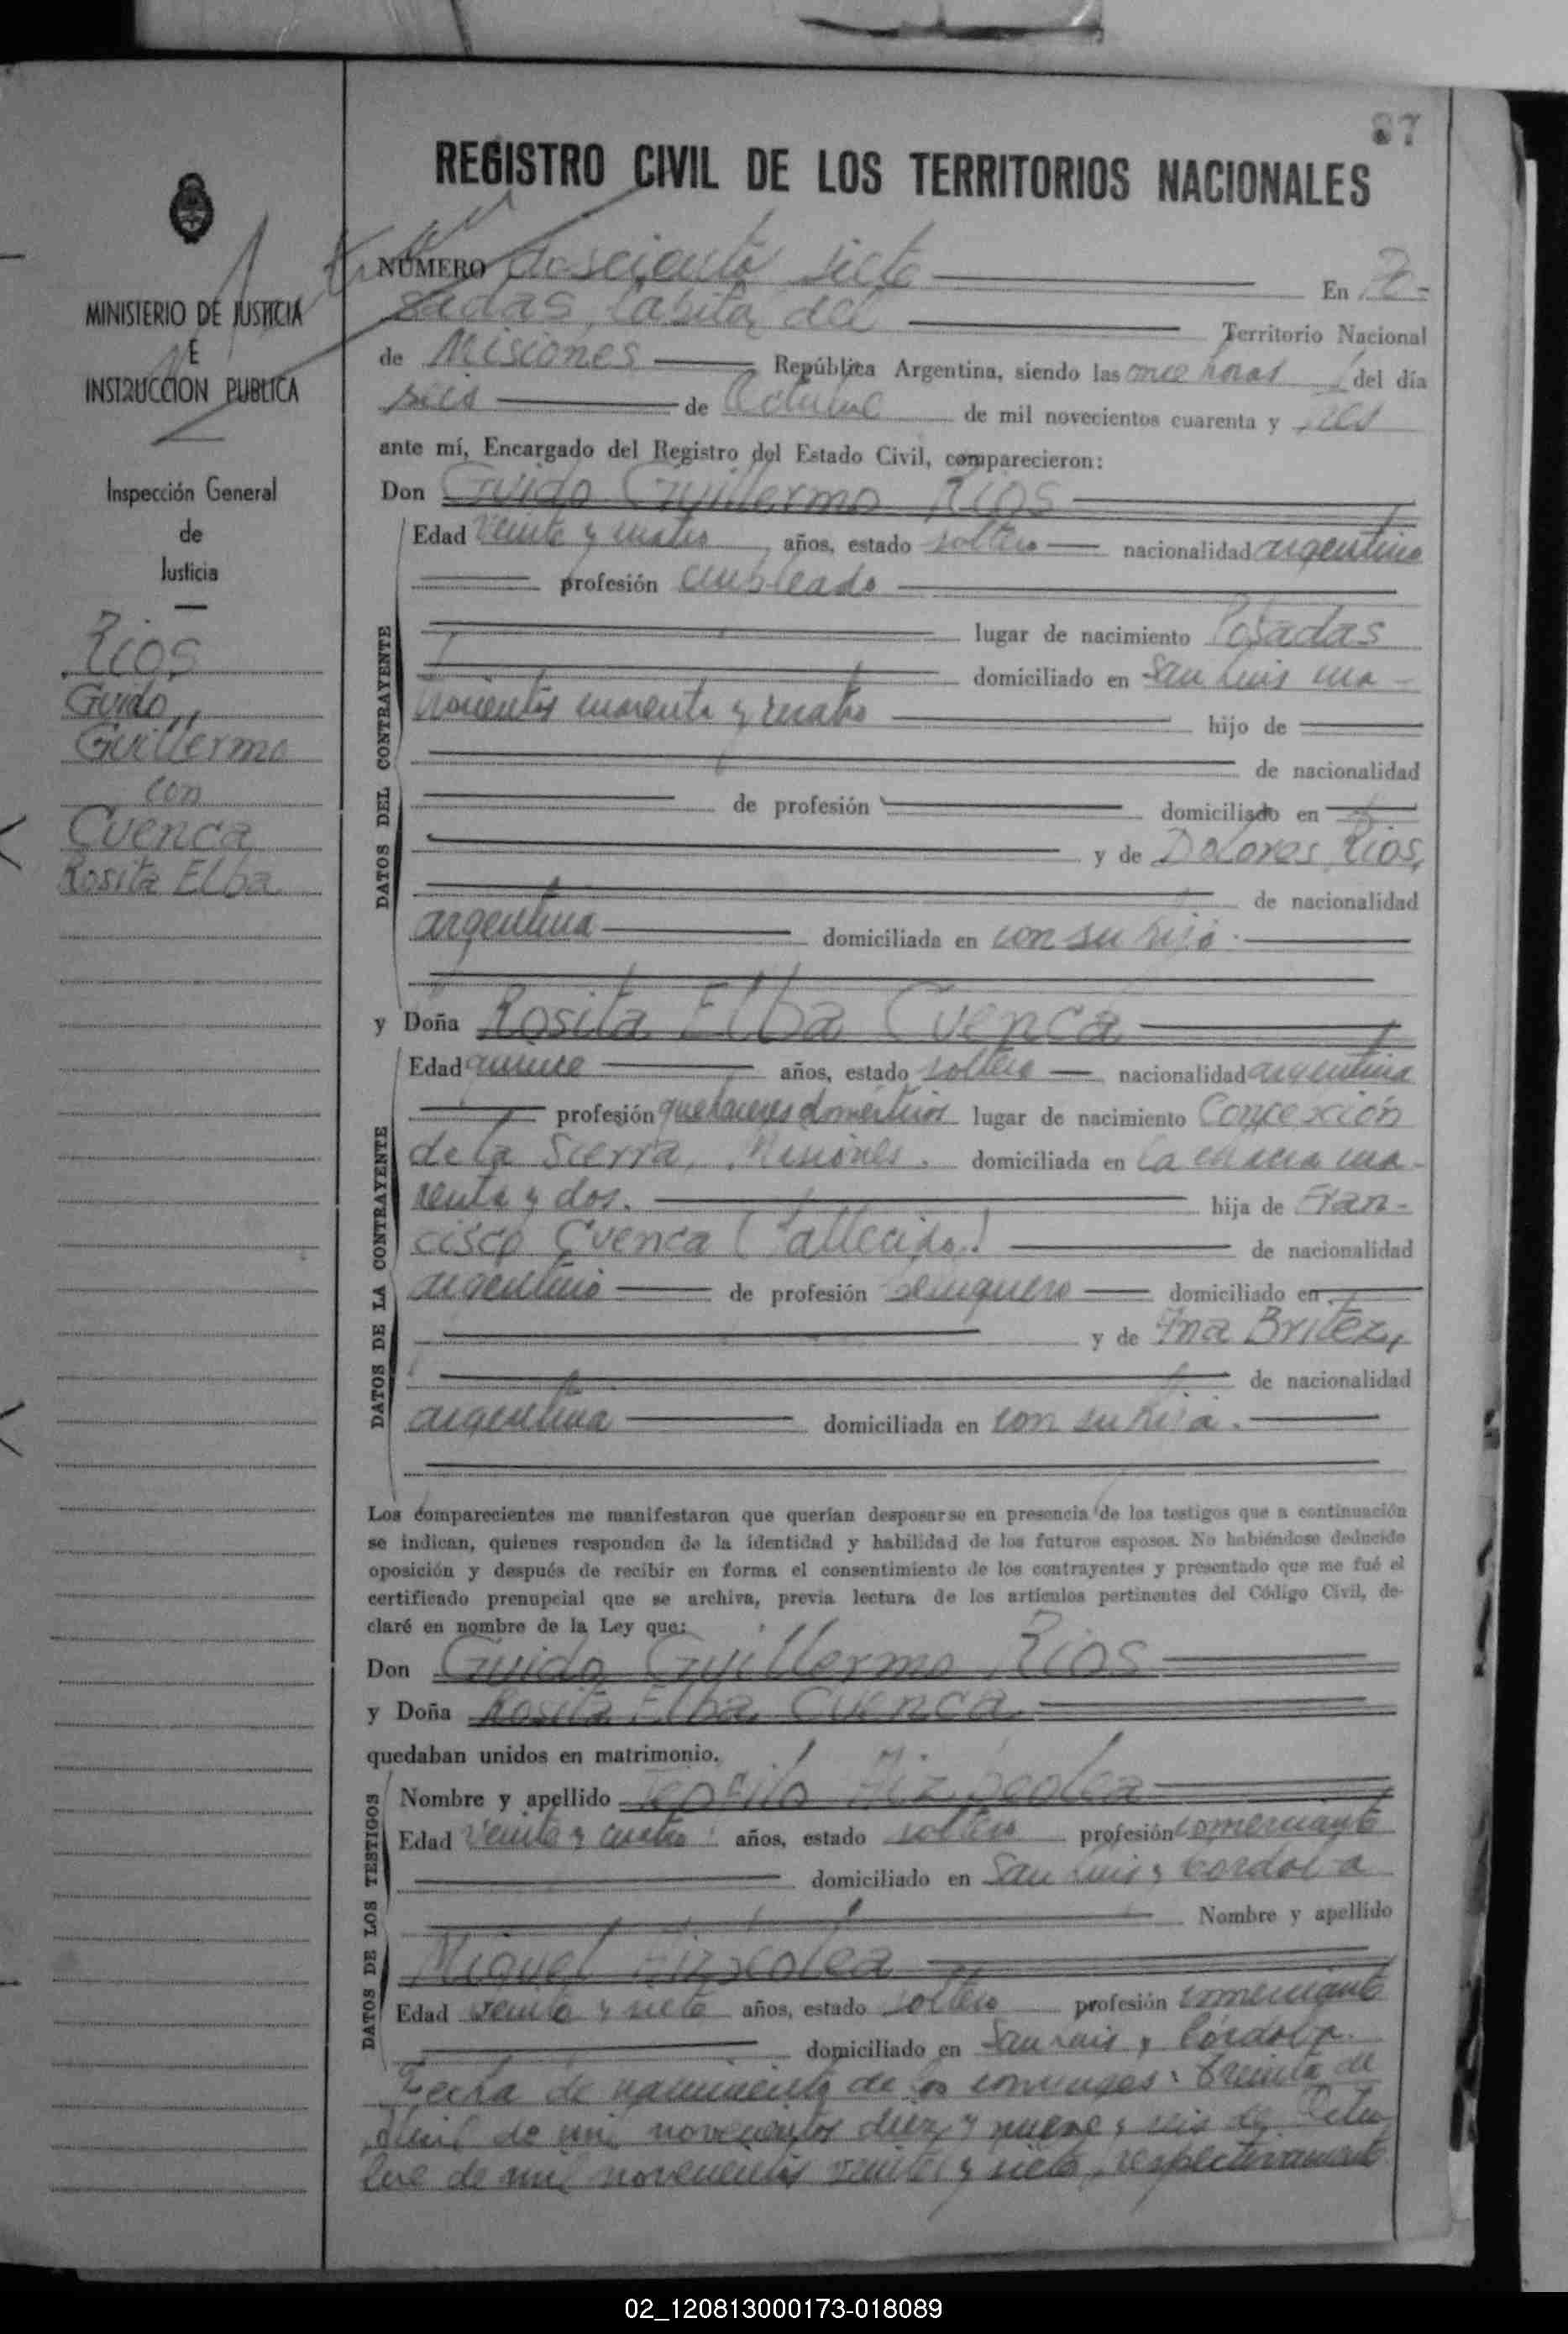 87
REGISTRO CIVIL DE LOS TERRITORIOS NACIONALES
MINISTERIO DE JUSTICIA
E
INSTRUCCION PUBLICA
Inspección General
de
Justicia
Rios
Guido
Guillermo
con
Cuenca
Rosita Elba
NÚMERO doscientos siete En Po-
sadas, Capital del Territorio Nacional
de Misiones República Argentina, siendo las once horas del día
seis de Octubre de mil novecientos cuarenta y tres
ante mí, Encargado del Registro del Estado Civil, comparecieron:
Don Guido Guillermo Rios
DATOS DEL CONTRAYENTE
Edad veinte y cuatro años, estado soltero nacionalidad argentino
profesión empleado
lugar de nacimiento Posadas
domiciliado en San Luis cua-
trocientos cuarenta y cuatro hijo de
de nacionalidad
de profesión domiciliado en
y de Dolores Rios,
de nacionalidad
argentina domiciliada en con su hijo.
y Doña Rosita Elba Cuenca
DATOS DE LA CONTRAYENTE
Edad quince años, estado soltera nacionalidad argentina
profesión quehaceres domésticos lugar de nacimiento Concepción
de la Sierra, Misiones. domiciliada en la chacra cua-
renta y dos. hija de Fran-
cisco Cuenca (fallecido) de nacionalidad
argentino de profesión domiciliado en
y de Ana Britez,
de nacionalidad
argentina domiciliada en con su hija.
Los comparecientes me manifestaron que querían desposarse en presencia de los testigos que a continuación
se indican, quienes responden de la identidad y habilidad de los futuros esposos. No habiéndose deducido
oposición y después de recibir en forma el consentimiento de los contrayentes y presentado que me fué el
certificado prenupcial que se archiva, previa lectura de los artículos pertinentes del Código Civil, de-
claré en nombre de la Ley que:
Don Guido Guillermo Rios
y Doña Rosita Elba Cuenca
quedaban unidos en matrimonio.
DATOS DE LOS TESTIGOS
Nombre y apellido Teofilo
Edad veinte y cuatro años, estado soltero profesión comerciante
domiciliado en San Luis y Cordoba
Nombre y apellido
Miguel
Edad veinte y siete años, estado soltero profesión comerciante
domiciliado en San Luis y Córdoba.
Fecha de nacimiento de los conyuges: treinta de
Abril de mil novecientos diez y nueve y seis de Octu-
bre de mil novecientos veinte y siete, respectivamente
02_120813000173-018089